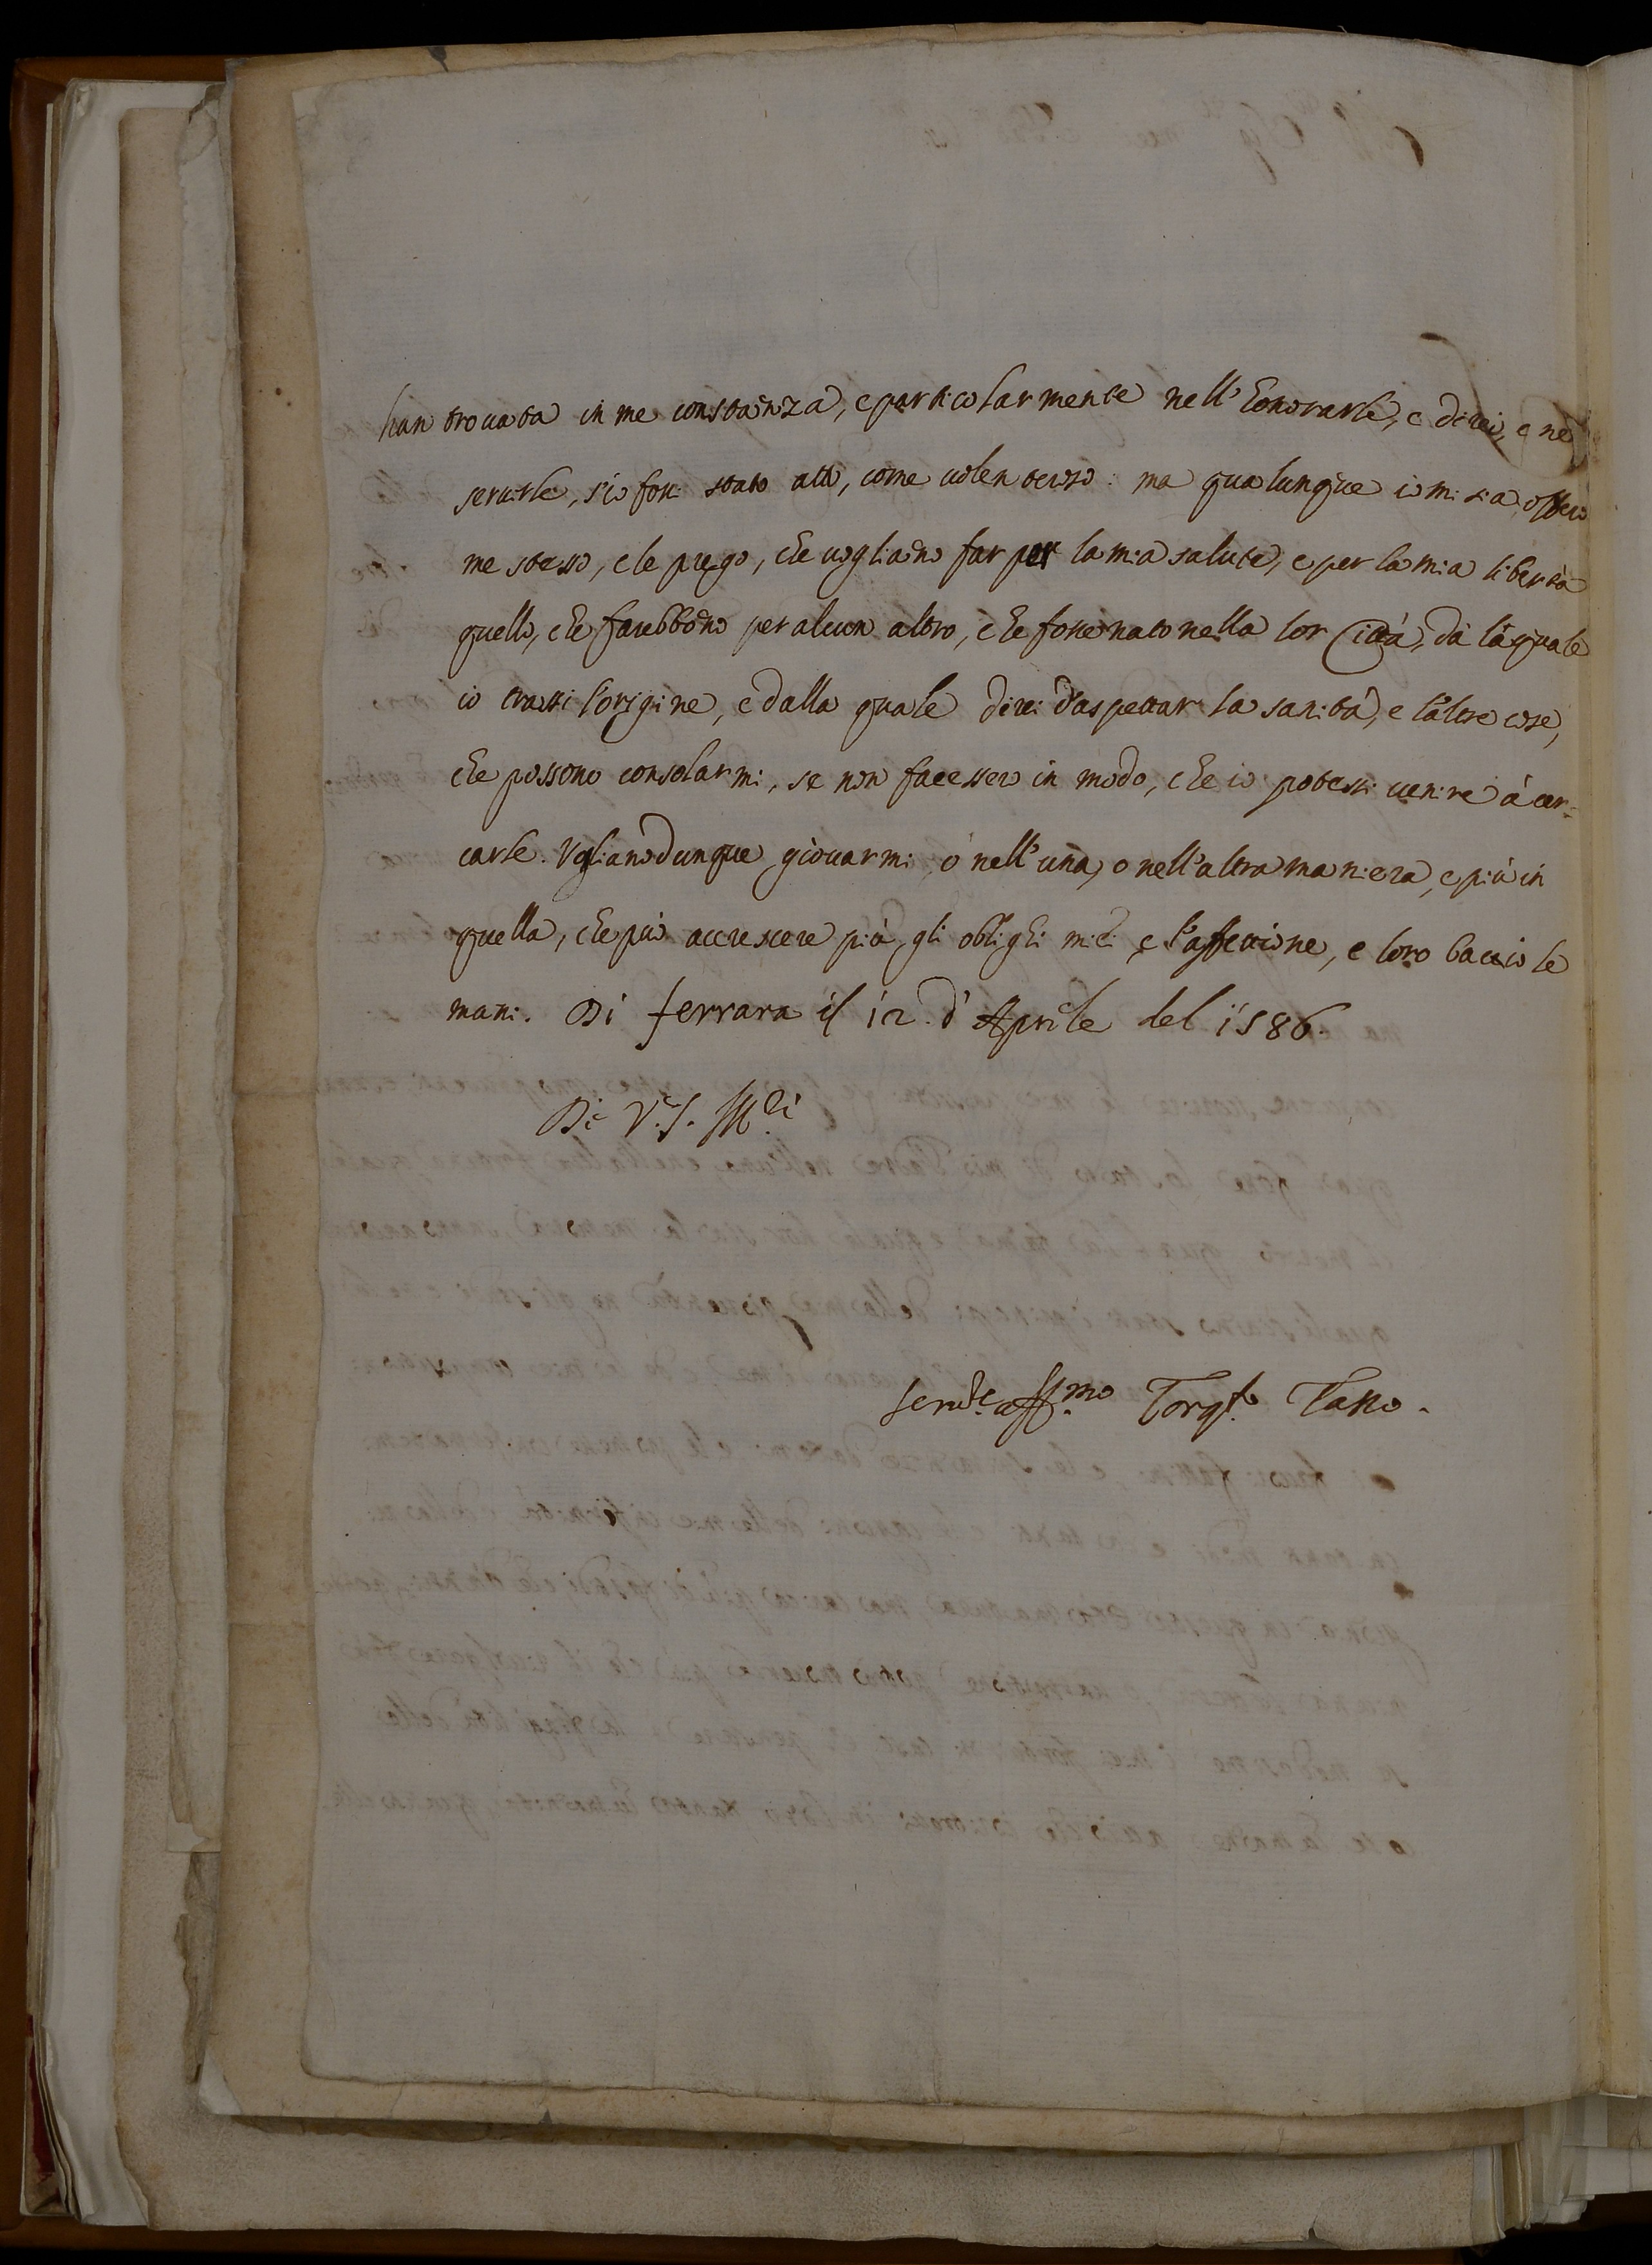 han trouata in me constanza, e particolarmente nell'honorarle, e direi, e nel
seruirle, s'io fossi stato atto, come uolenteroso: ma qualunque io mi sia, offero
me stesso, e le prego, che uogliano far per la mia salute, e per la mia libertà
quello, che farebbono per alcun altro, che fosse nato nella lor Città, da la quale
io trassi l'origine, e dalla quale direi d'aspettar la sanità, e l'altre cose,
che possono consolarmi, se non facessero in modo, che io potessi uenire à cer-
carle. Vogliano dunque giouarmi, ò nell'una, o nell'altra maniera, e più in
quella, che può accrescere più, gli oblighi miei e l'affettione, e loro baccio le
mani. Di ferrara il 12. d'Aprile del 1586.
Di V. S. M.ci
Serui.re aff.mo Torq.to Tasso.